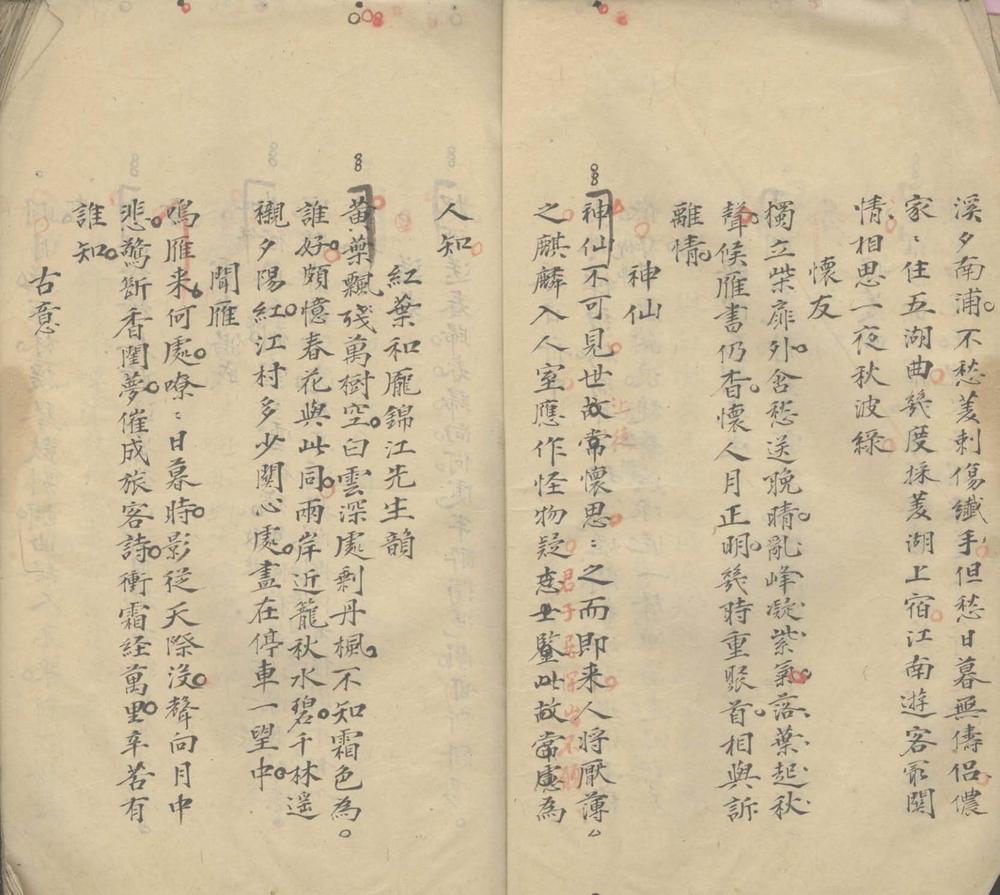 溪夕南浦。不愁菱刺傷纖手。但愁日暮無儔侶。儂
家〻住五湖曲。幾度採菱湖上宿。江南遊客最關
情。相思一夜秋波綠
懷友
獨立柴扉外。含愁送晚晴。亂峰凝紫氣。落葉起秋
聲。候雁書仍杳。懷人月正明。幾時重聚首。相與訴
離情。
神仙
神仙不可見。世故常懷思〻之而即来。人將厭薄。
之麒麟入人室。應作怪物疑。志士鑒此故。常慮為
君子 深 不
人知。
紅葉和龐錦江先生韻
黃葉飄殘萬樹空。白雲深處剩丹楓。不知霜色為。
誰好。頗憶春花與此同。兩岸近籠秋水碧。千林遥
襯夕陽紅。江村多少關心處。盡在停車一望中。
聞雁
鳴雁来何處。嘹〻日暮時。影從天際沒。聲向月中
悲。驚斷香閨夢。催成旅客詩。衝霜経萬里。辛苦有
誰知。
古意